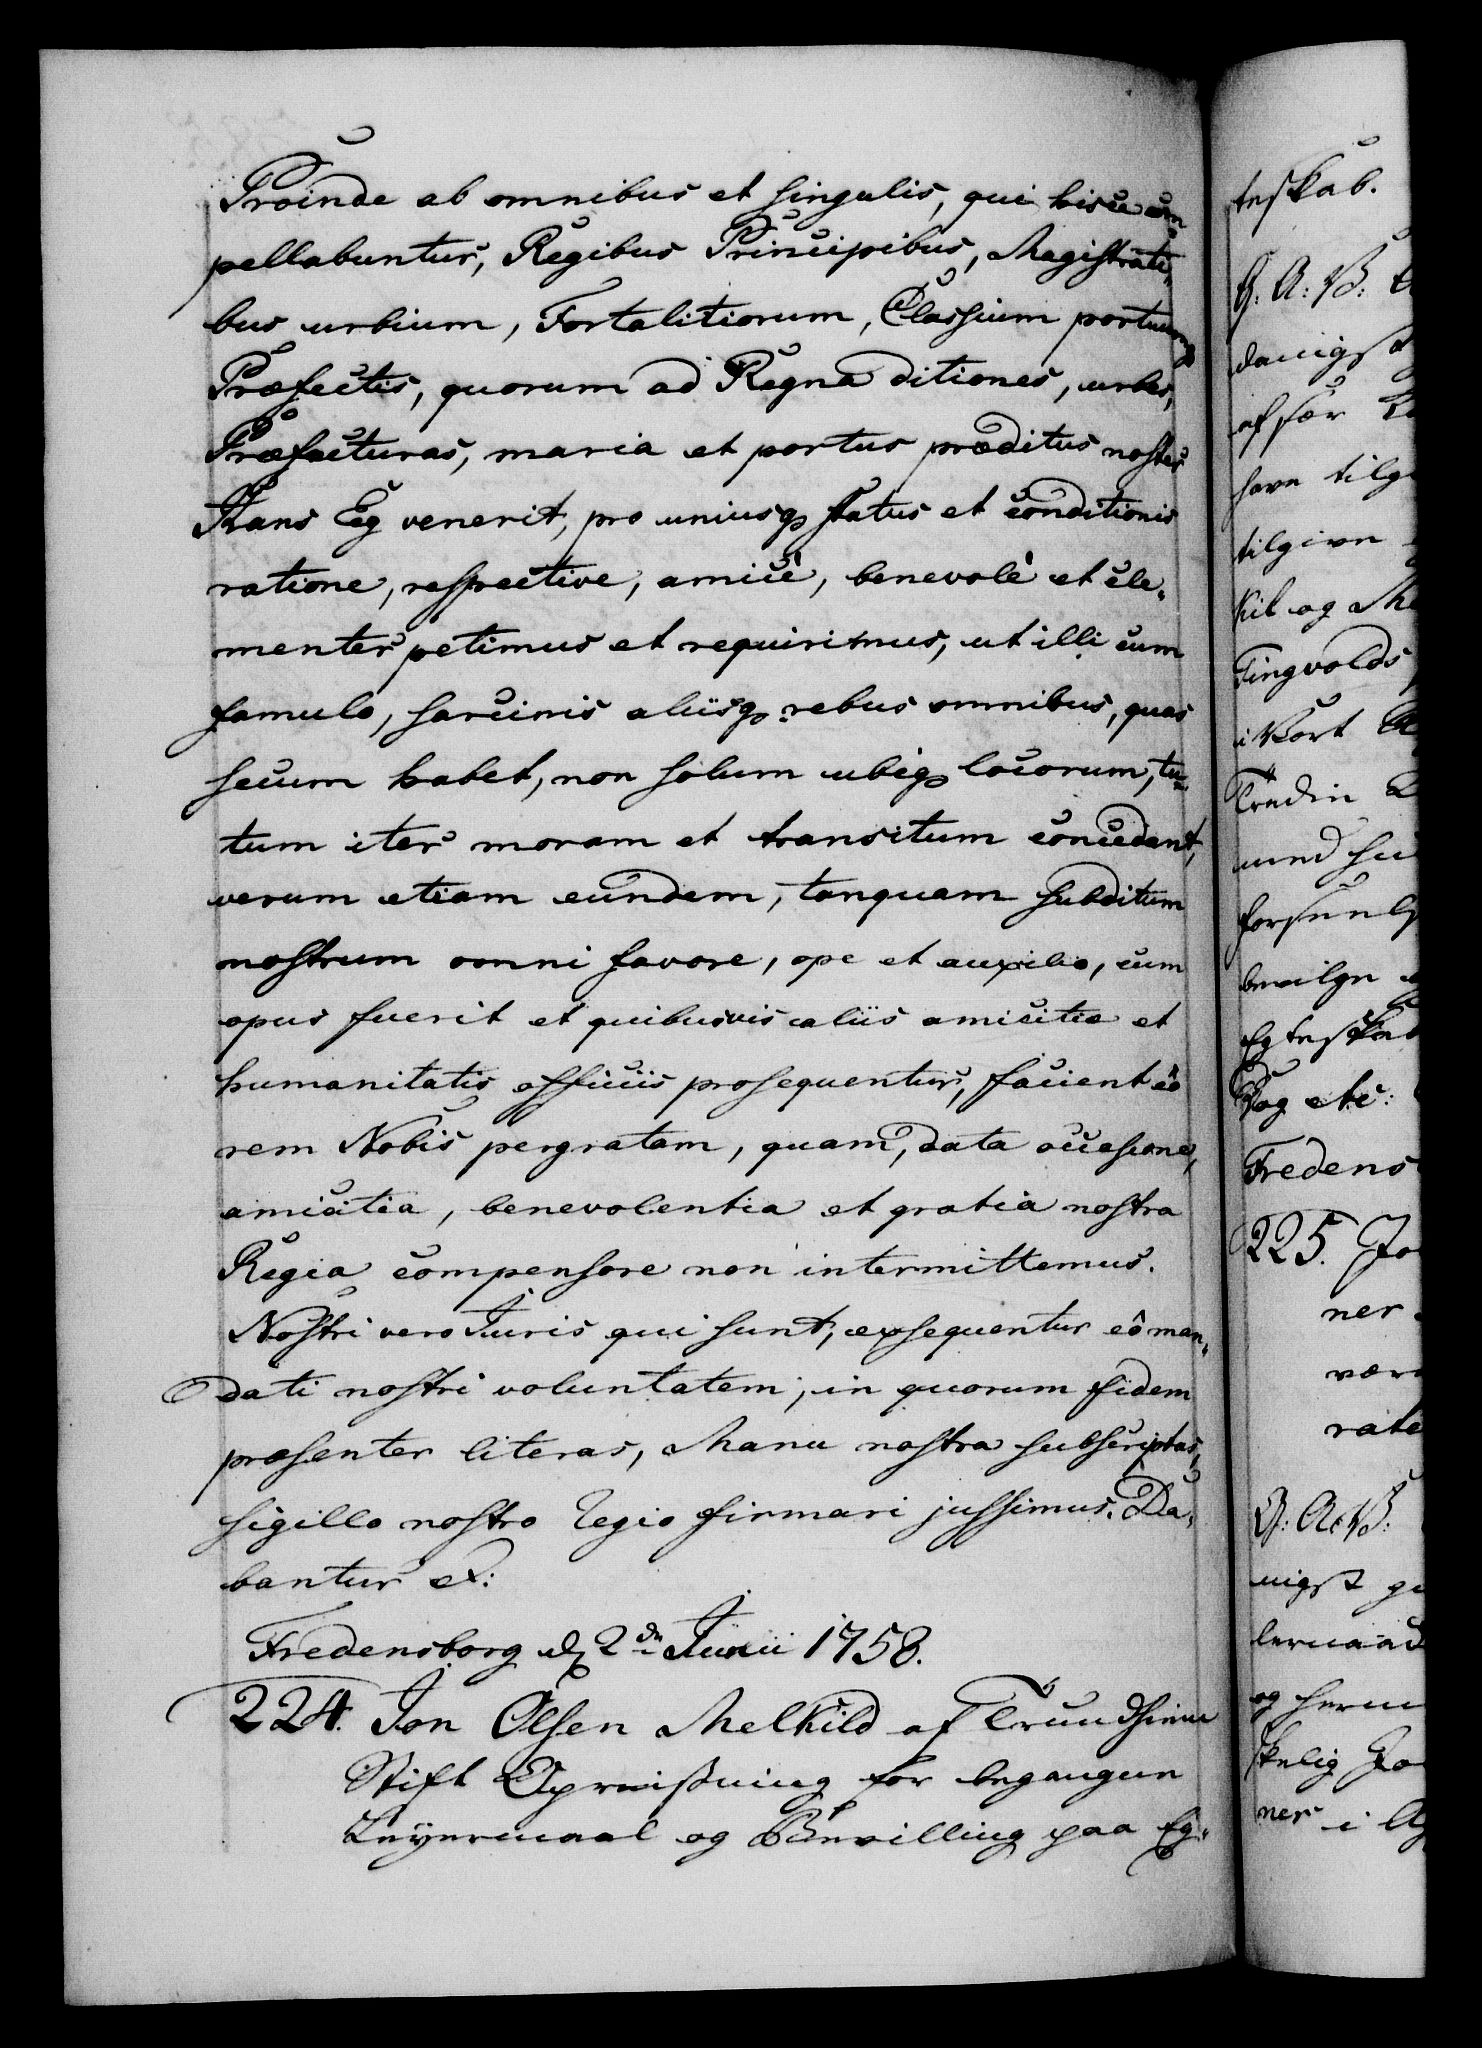 Proinde ab omnibus et singulis, qui hisce com
pellabuntur, Regibus Principibus, Magistrati-
bus urbium, Fortalitiorum, Classium portuumqve
Præfectis, quorum ad Regna ditiones, urbes,
Præfecturas, maria et portus præditus noster
Hans Eeg venerit, pro uniusq status et conditionis
ratione, respective, amicè, benevolè et cle-
menter petimus et requirimus, ut illi cum
famulo, sarcinis aliisq rebus omnibus, quas
secum habet, non solum ubiq locorum, tu-
tum iter moram et transitum concedant,
verum etiam eundem, tanquam subditum
nostrum omni favore, ope et auxilio, cum
opus fuerit et quibusvis aliis amicitiæ et
humanitatis officiis prosequentur, facient eô
rem Nobis pergratam, quam, data occasione,
amicitia, benevolentia et gratia nostra
Regia compensare non intermittemus.
Nostri vero Juris qui sunt, exsequentur eô man-
dati nostri voluntatem, in quorum fidem
præsenter literas, Manu nostra subscriptas,
sigillo nostro Regio firmari jussimus. Da-
bantur et:
Fredensborg d 2dn Junii 1758.
224. Jon Olsen Melkild af Trundhiem
Stift Opreisning for begangen
Leyermaal og Bevilling paa Eg-
teskab.
G: A: V:
afskær
havn tilg
tilgiven
kil og Me
Tingvolds
i Vort
bevilge
Egteskab
Dog etc:
Fredens
225. Jo
ner
være
rate
G: A: V:
nigst
lermaal
og
skelig Jo
ner i